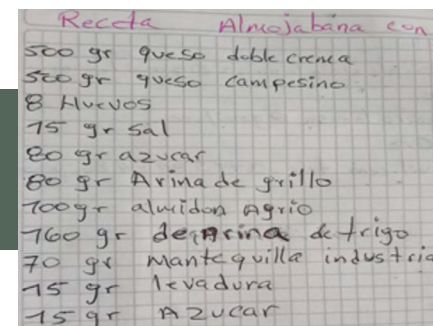 Receta Almojabana con
500 gr queso doble crema
500 gr queso campesino
8 Huevos
15 gr sal
80 gr azucar
80 gr Arina de grillo
100gr almidon Agrio
160 gr de Arina de trigo
70 gr Mantequilla industria
15 gr levadura
15 gr Azucar